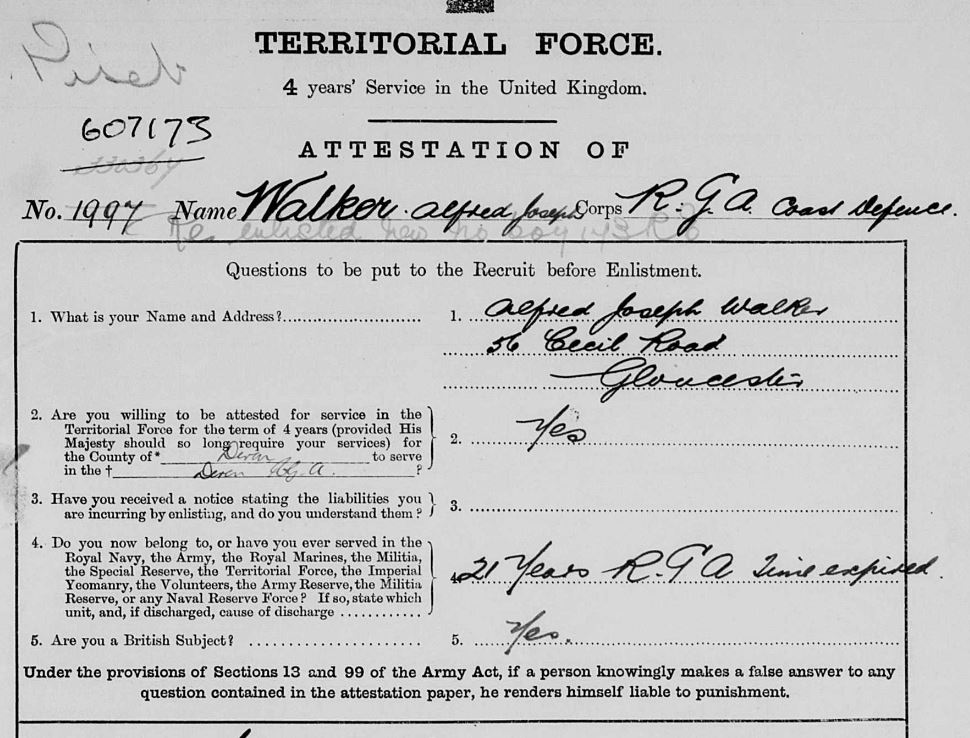 TERRITORIAL FORCE.
4 years' Service in the United Kingdom.
607173
ATTESTATION OF
No. 1997 Name Walker. Alfred Joseph Corps R.G.A. Coast Defence.
Re enlisted new no
Questions to be put to the Recruit before Enlistment.
1. What is your Name and Address?........................ 1. Alfred Joseph Walker
56 Cecil Road
Gloucester
2. Are you willing to be attested for service in the
Territorial Force for the term of 4 years (provided His
Majesty should so long require your services) for
the County of* Devon to serve
in the † Devon R.G.A. ?
2. Yes
3. Have you received a notice stating the liabilities you
are incurring by enlisting, and do you understand them?
3.
4. Do you now belong to, or have you ever served in the
Royal Navy, the Army, the Royal Marines, the Militia,
the Special Reserve, the Territorial Force, the Imperial
Yeomanry, the Volunteers, the Army Reserve, the Militia
Reserve, or any Naval Reserve Force? If so, state which
unit, and, if discharged, cause of discharge ............
4. 21 Years R.G.A Time expired.
5. Are you a British Subject? ........................ 5. Yes.
Under the provisions of Sections 13 and 99 of the Army Act, if a person knowingly makes a false answer to any
question contained in the attestation paper, he renders himself liable to punishment.